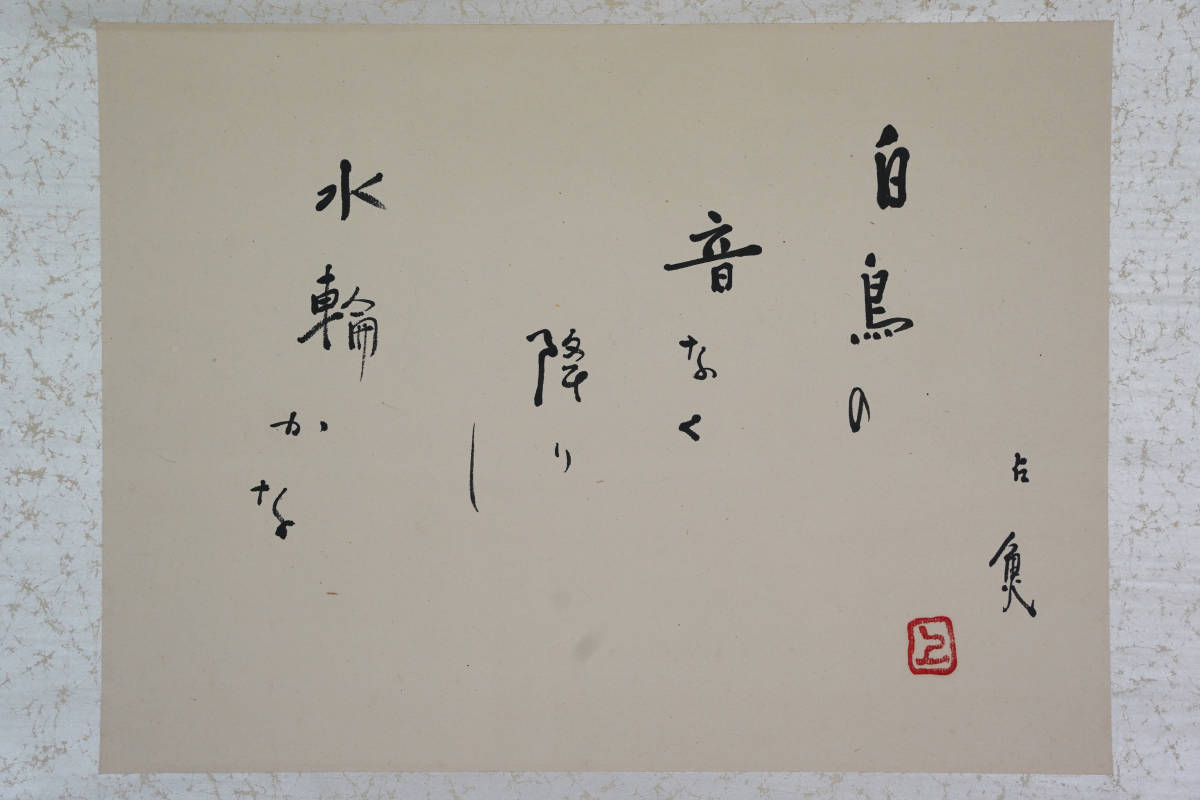 占魚
白鳥の
音なく
降り
し
水輪かな
上